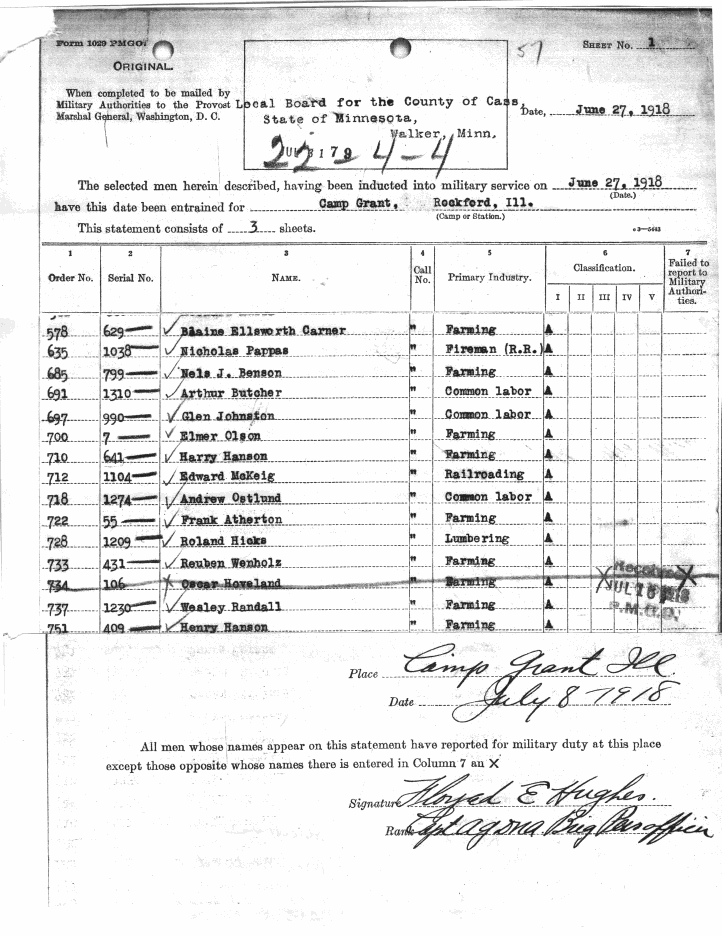 Form 1029 PMGO
57
SHEET No. 1
ORIGINAL.
When completed to be mailed by
Military Authorities to the Provost
Marshal General, Washington, D. C.
Local Board for the County of Cass,
State of Minnesota,
Walker, Minn.
Date, June 27, 1918
22 4-4
The selected men herein described, having been inducted into military service on June 27, 1918
(Date.)
have this date been entrained for Camp Grant, Rockford, Ill.
(Camp or Station.)
This statement consists of 3 sheets.
1 2 3 4 5 6 7
Order No. Serial No. NAME. Call No. Primary Industry. Classification. Failed to report to Military Authori-ties.
I II III IV V
578 629 ✓ Blaine Ellsworth Carner " Farming A
635 1038 ✓ Nicholas Pappas " Fireman (R.R.) A
685 799 ✓ Nels J. Benson " Farming A
691 1310 ✓ Arthur Butcher " Common labor A
697 990 ✓ Glen Johnston " Common labor A
700 7 ✓ Elmer Olson " Farming A
710 641 ✓ Harry Hanson " Farming A
712 1104 ✓ Edward McKeig " Railroading A
718 1274 ✓ Andrew Ostlund " Common labor A
722 55 ✓ Frank Atherton " Farming A
728 1209 ✓ Roland Hicks " Lumbering A
733 431 ✓ Reuben Wenholz " Farming A
734 106 X Oscar Hoveland " Farming A X X
Received
JUL 18
P.M.G.O.
737 1230 ✓ Wesley Randall " Farming A
751 409 ✓ Henry Hanson " Farming A
Place Camp Grant Ill.
Date July 8 1918
All men whose names appear on this statement have reported for military duty at this place
except those opposite whose names there is entered in Column 7 an X
Signature Floyd E Hughes.
Rank Capt